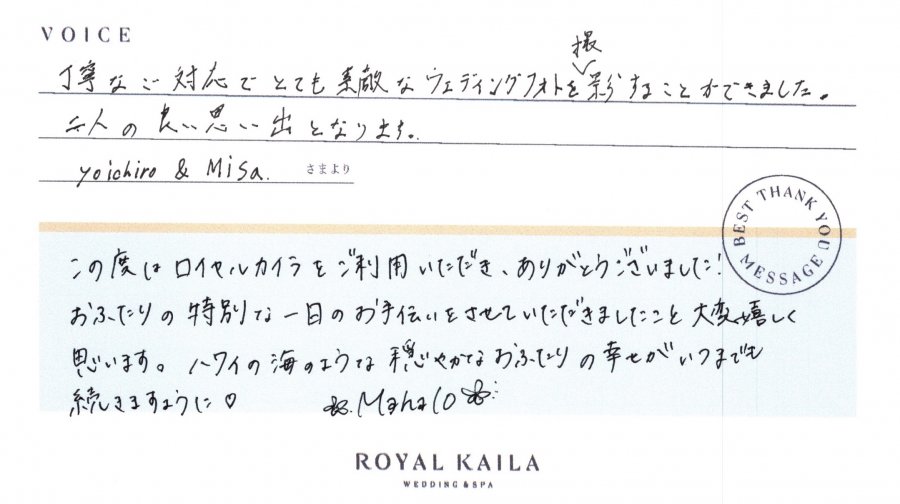 VOICE
丁寧なご対応でとても素敵なウェディングフォトを撮影することができました。
二人の良い思い出となります。
yoichiro & Misa. さまより
BEST THANK YOU MESSAGE
この度はロイヤルカイラをご利用いただき、ありがとうございました!
おふたりの特別な一日のお手伝いをさせていただきましたこと大変嬉しく
思います。ハワイの海のような穏やかなおふたりの幸せがいつまでも
続きますように♡ Mahalo
ROYAL KAILA
WEDDING & SPA